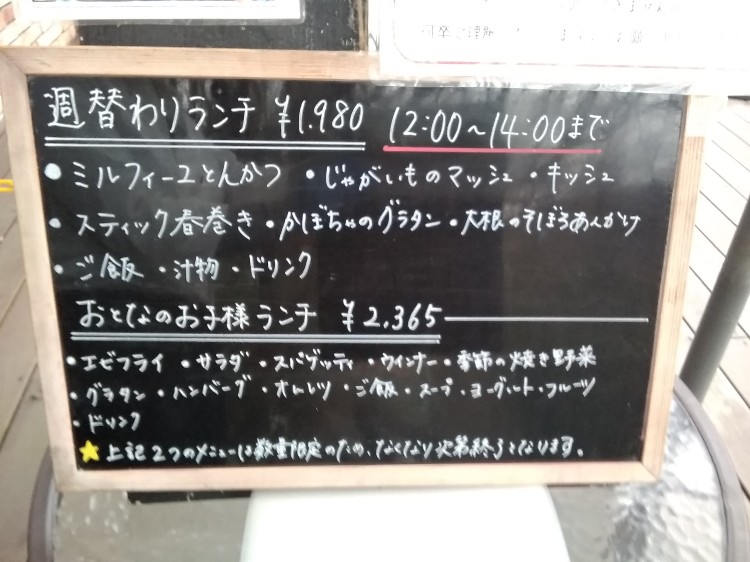 週替わりランチ ¥1.980 12:00〜14:00まで
・ミルフィーユとんかつ ・じゃがいものマッシュ ・キッシュ
・スティック春巻き ・かぼちゃのグラタン ・大根のそぼろあんかけ
・ご飯 ・汁物 ・ドリンク
おとなのお子様ランチ ¥2.365
・エビフライ ・サラダ ・スパゲッティ ・ウインナー ・季節の焼き野菜
・グラタン ・ハンバーグ ・オムレツ ・ご飯 ・スープ ・ヨーグルト ・フルーツ
・ドリンク
★上記2つのメニューは数量限定のため、なくなり次第終了となります。